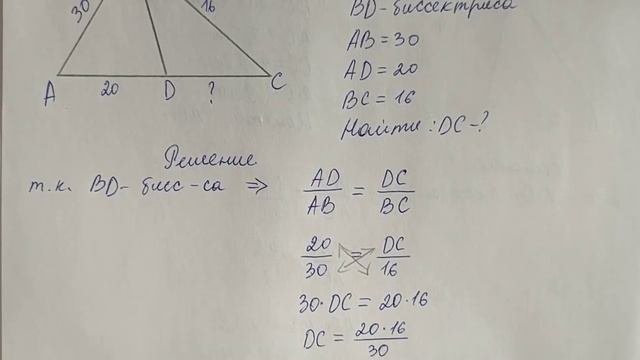 30
16
BD - биссектриса
AB = 30
A 20 D ? C
AD = 20
BC = 16
Найти: DC - ?
Решение
т.к. BD - бисс-са ⇒ AD/AB = DC/BC
20/30 = DC/16
30·DC = 20·16
DC = 20·16/30